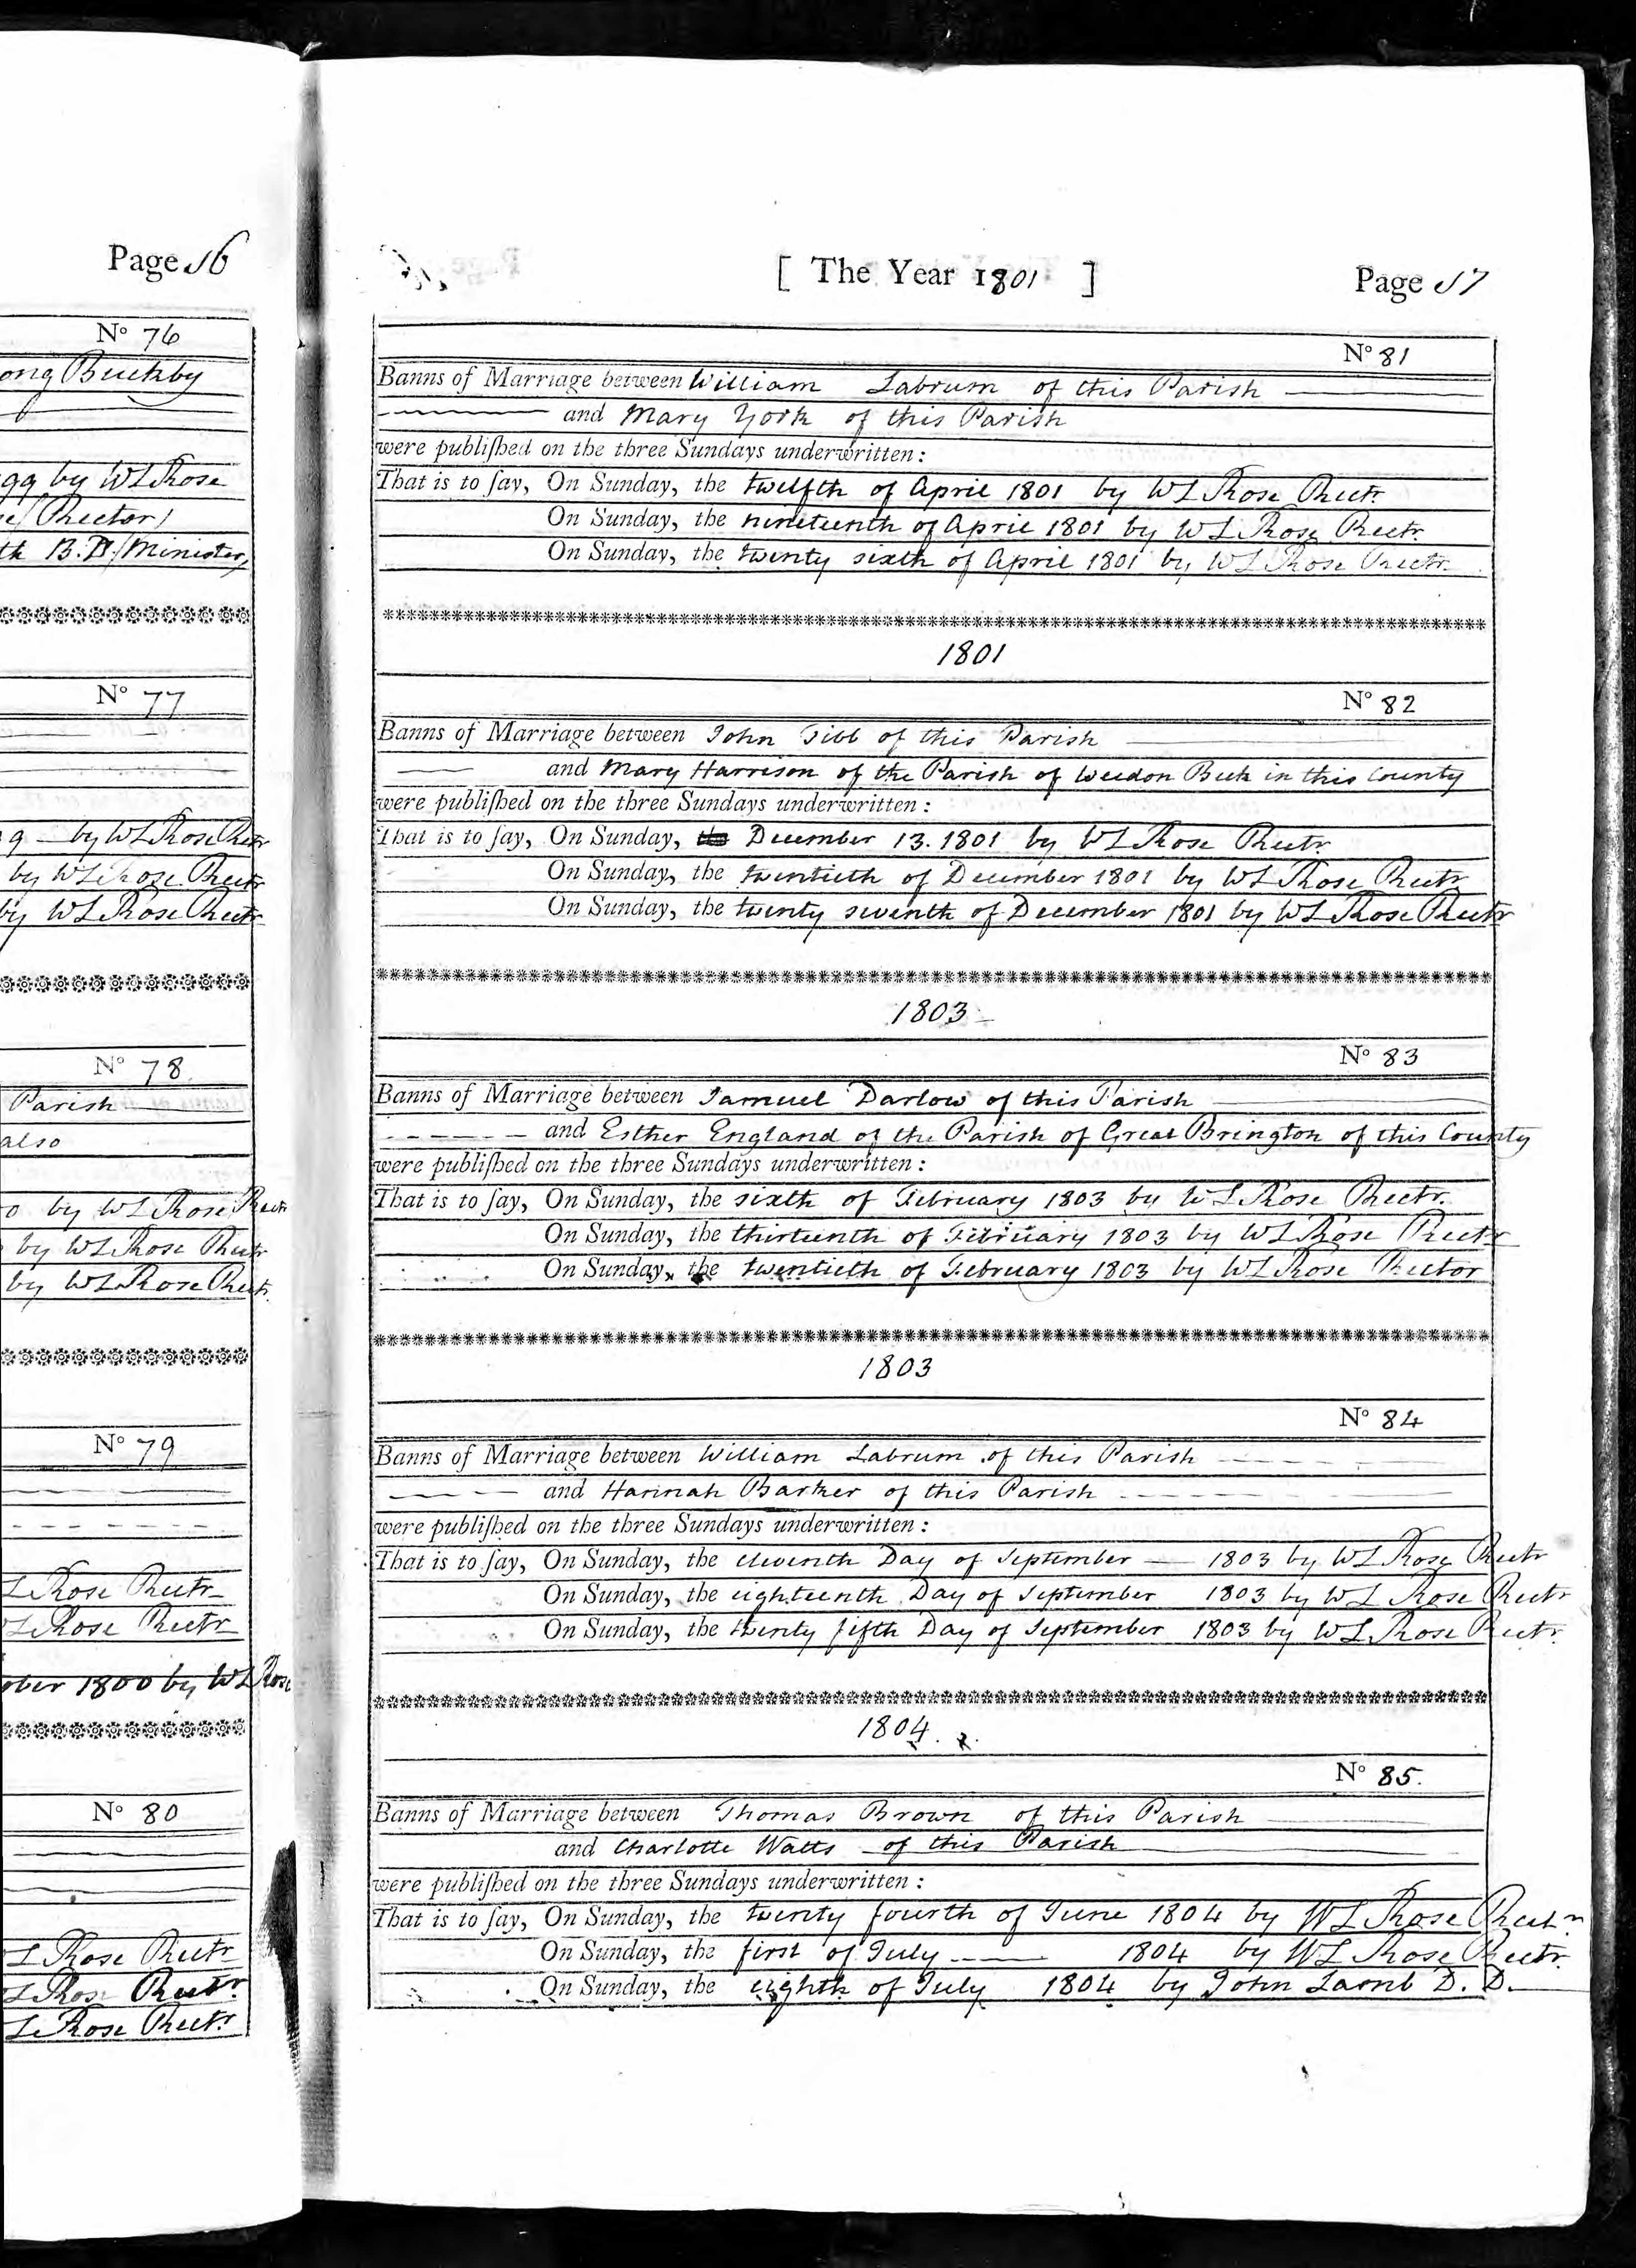 Page 16
No 76
ong Buckby
99 by WL Rose
se/Rector/
th B.D/Minister/
No 77
9 - by WL Rose Rectr
by WL Rose Rectr
by WL Rose Rectr
No 78
Parish
also
0 by WL Rose Rectr
by WL Rose Rectr
by WL Rose Rectr.
No 79
L Rose Rectr
L Rose Rectr
ober 1800 by WL Rose
No 80
L Rose Rectr
L Rose Rectr.
L Rose Rectr.
[ The Year 1801 ] Page 17
No 81
Banns of Marriage between William Labrum of this Parish
and Mary York of this Parish
were publiſhed on the three Sundays underwritten:
That is to ſay, On Sunday, the twelfth of April 1801 by WL Rose Rectr.
On Sunday, the nineteenth of April 1801 by WL Rose Rectr.
On Sunday, the twenty sixth of April 1801 by WL Rose Rectr.
1801
No 82
Banns of Marriage between John Tibb of this Parish
and Mary Harrison of the Parish of Weedon Beck in this County
were publiſhed on the three Sundays underwritten:
That is to ſay, On Sunday, the December 13. 1801 by WL Rose Rectr.
On Sunday, the twentieth of December 1801 by WL Rose Rectr
On Sunday, the twenty seventh of December 1801 by WL Rose Rectr
1803
No 83
Banns of Marriage between Samuel Darlow of this Parish
and Esther England of the Parish of Great Brington of this County
were publiſhed on the three Sundays underwritten:
That is to ſay, On Sunday, the sixth of February 1803 by WL Rose Rectr.
On Sunday, the thirteenth of February 1803 by WL Rose Rectr
On Sunday, the twentieth of February 1803 by WL Rose Rector
1803
No 84
Banns of Marriage between William Labrum of this Parish
and Hannah Barker of this Parish
were publiſhed on the three Sundays underwritten:
That is to ſay, On Sunday, the eleventh Day of September — 1803 by WL Rose Rectr
On Sunday, the eighteenth Day of September 1803 by WL Rose Rectr
On Sunday, the twenty fifth Day of September 1803 by WL Rose Rectr.
1804.
No 85.
Banns of Marriage between Thomas Brown of this Parish
and Charlotte Watts of this Parish
were publiſhed on the three Sundays underwritten:
That is to ſay, On Sunday, the twenty fourth of June 1804 by WL Rose Rectr
On Sunday, the first of July — 1804 by WL Rose Rectr.
On Sunday, the eighth of July 1804 by John Lamb D. D.